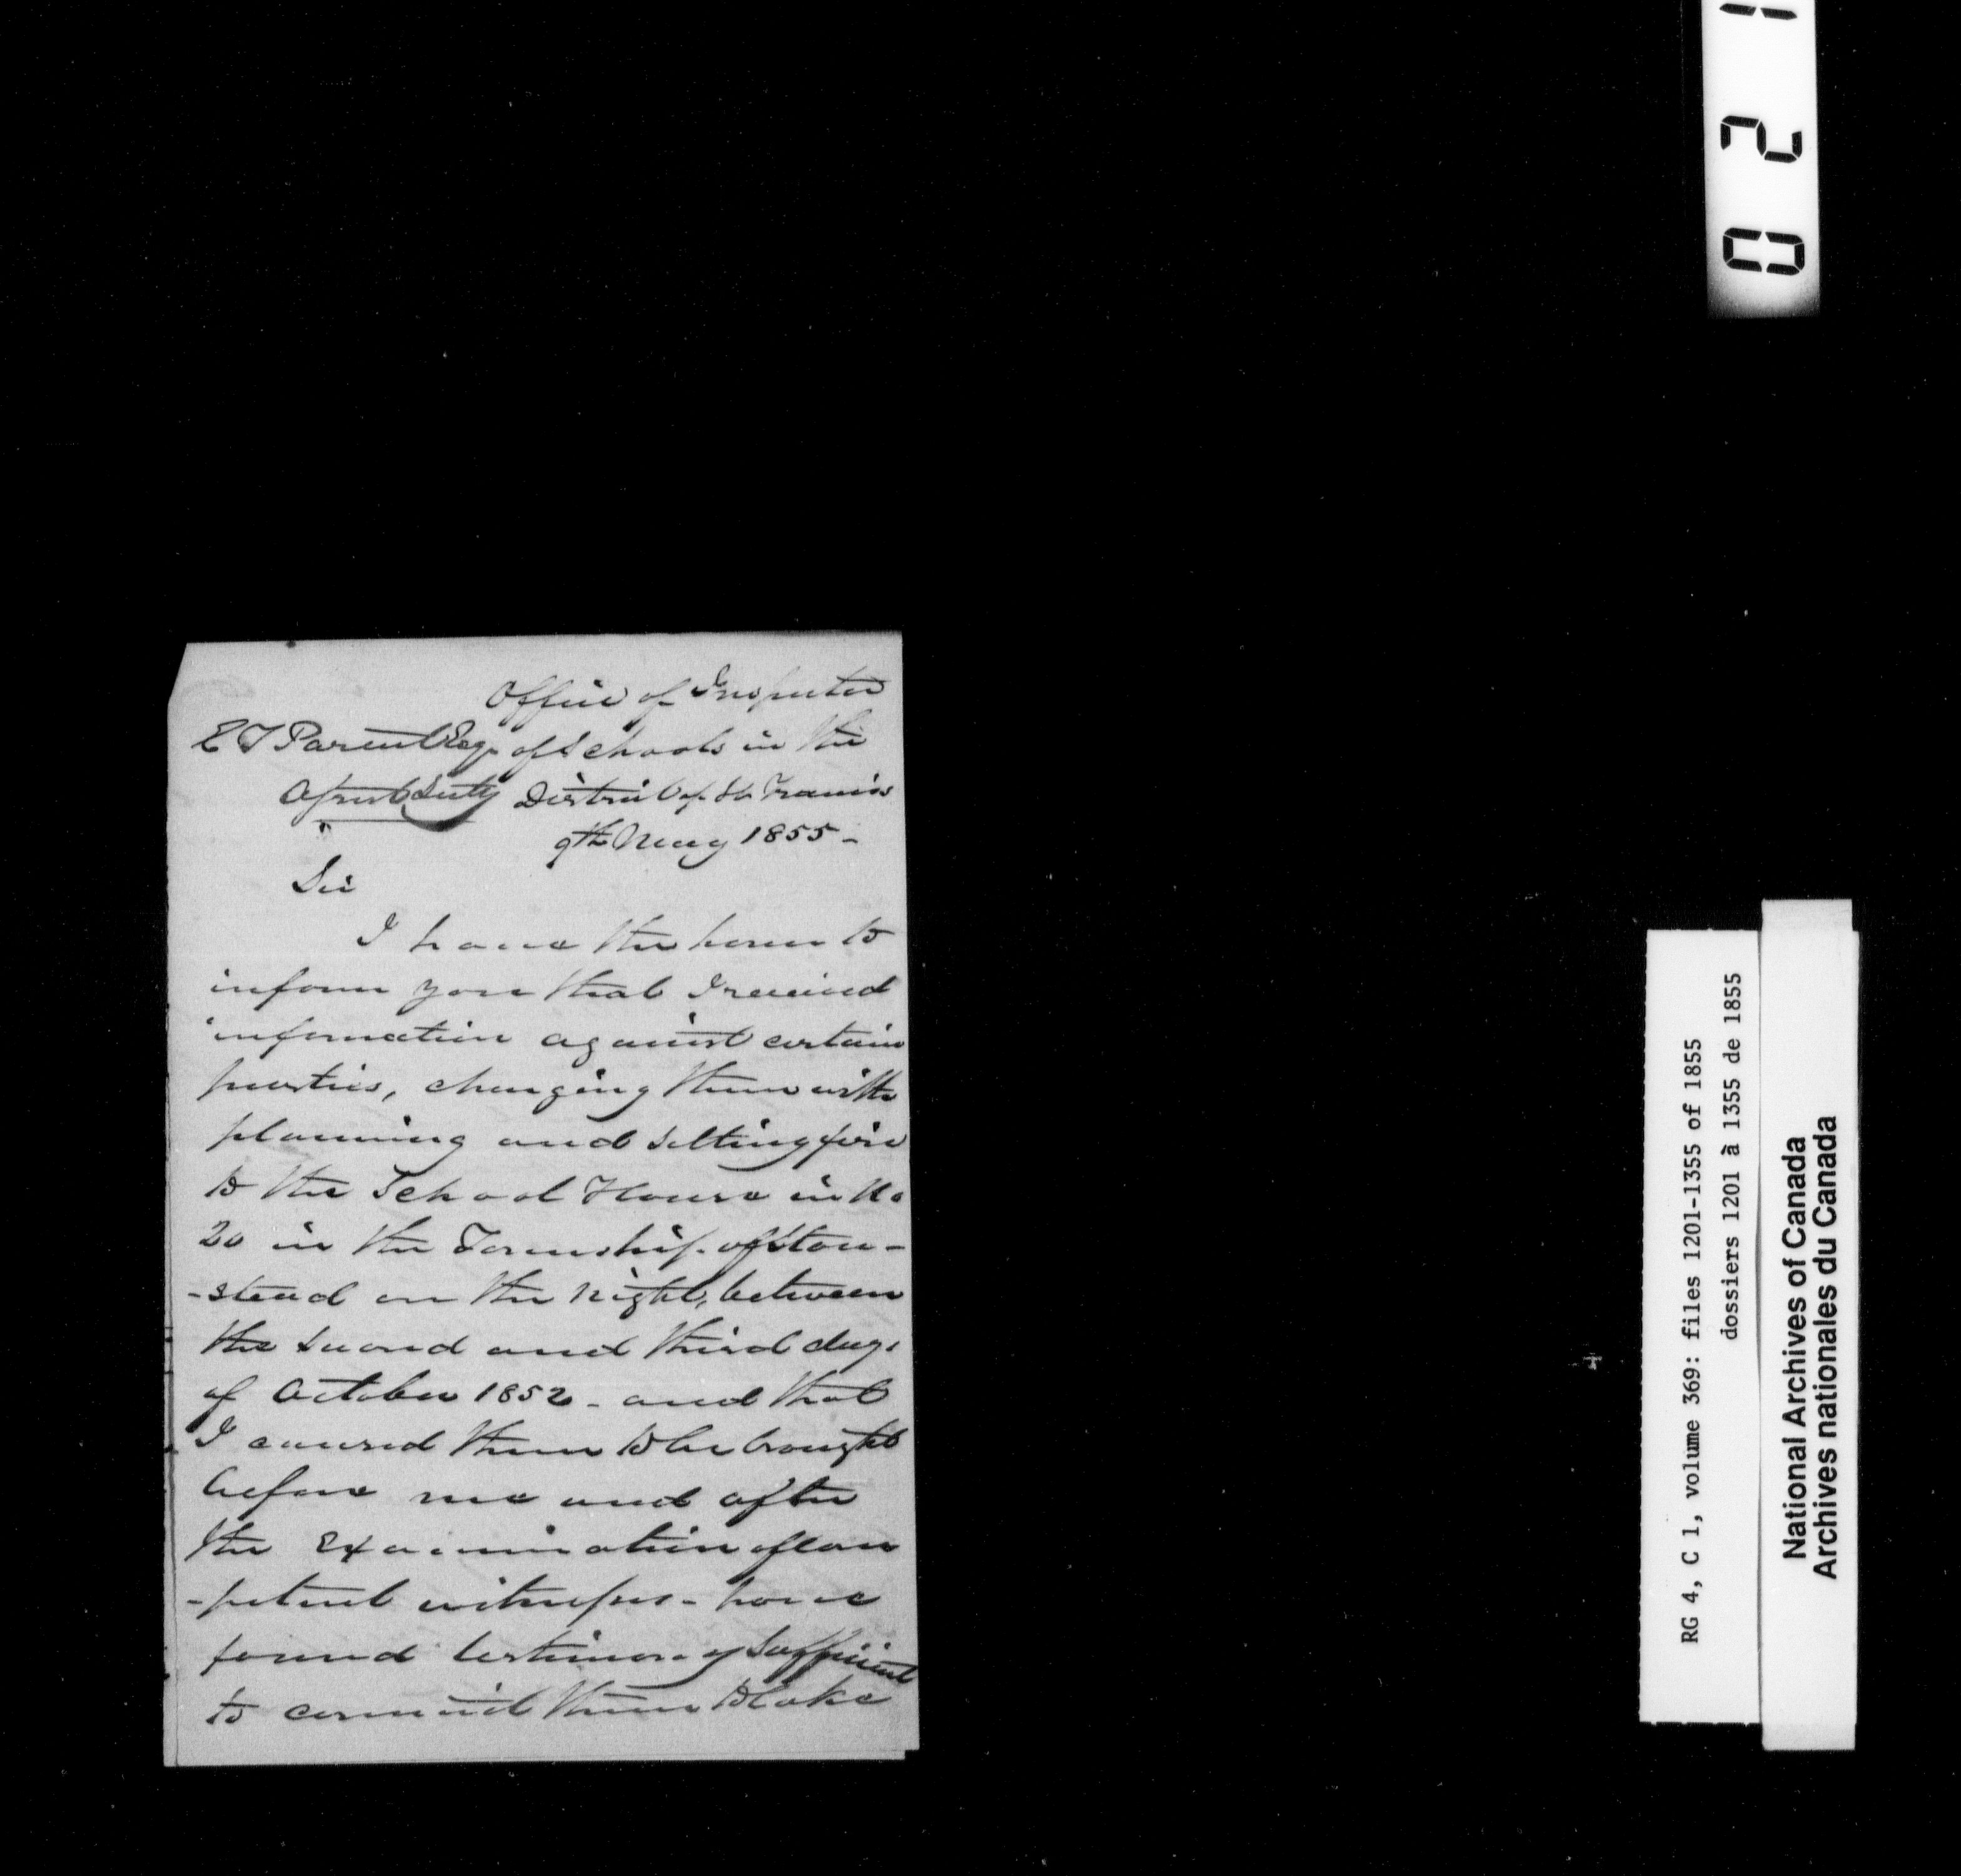 Office of Inspector
E T Parent Esq. of Schools in the
Assist Secty District of St Francis
9th May 1855 -
Sir
I have the honor to
inform you that I received
information against certain
parties, charging them with
planning and setting fire
to the School House in No
20 in the Township of Stan-
-stead on the night, between
the second and third days
of October 1852 - and that
I caused them to be brought
before me and after
the Examination of com
-petent witnesses - have
found testimony sufficient
to commit them to take
021
RG 4, C 1, volume 369: files 1201-1355 of 1855
dossiers 1201 à 1355 de 1855
National Archives of Canada
Archives nationales du Canada